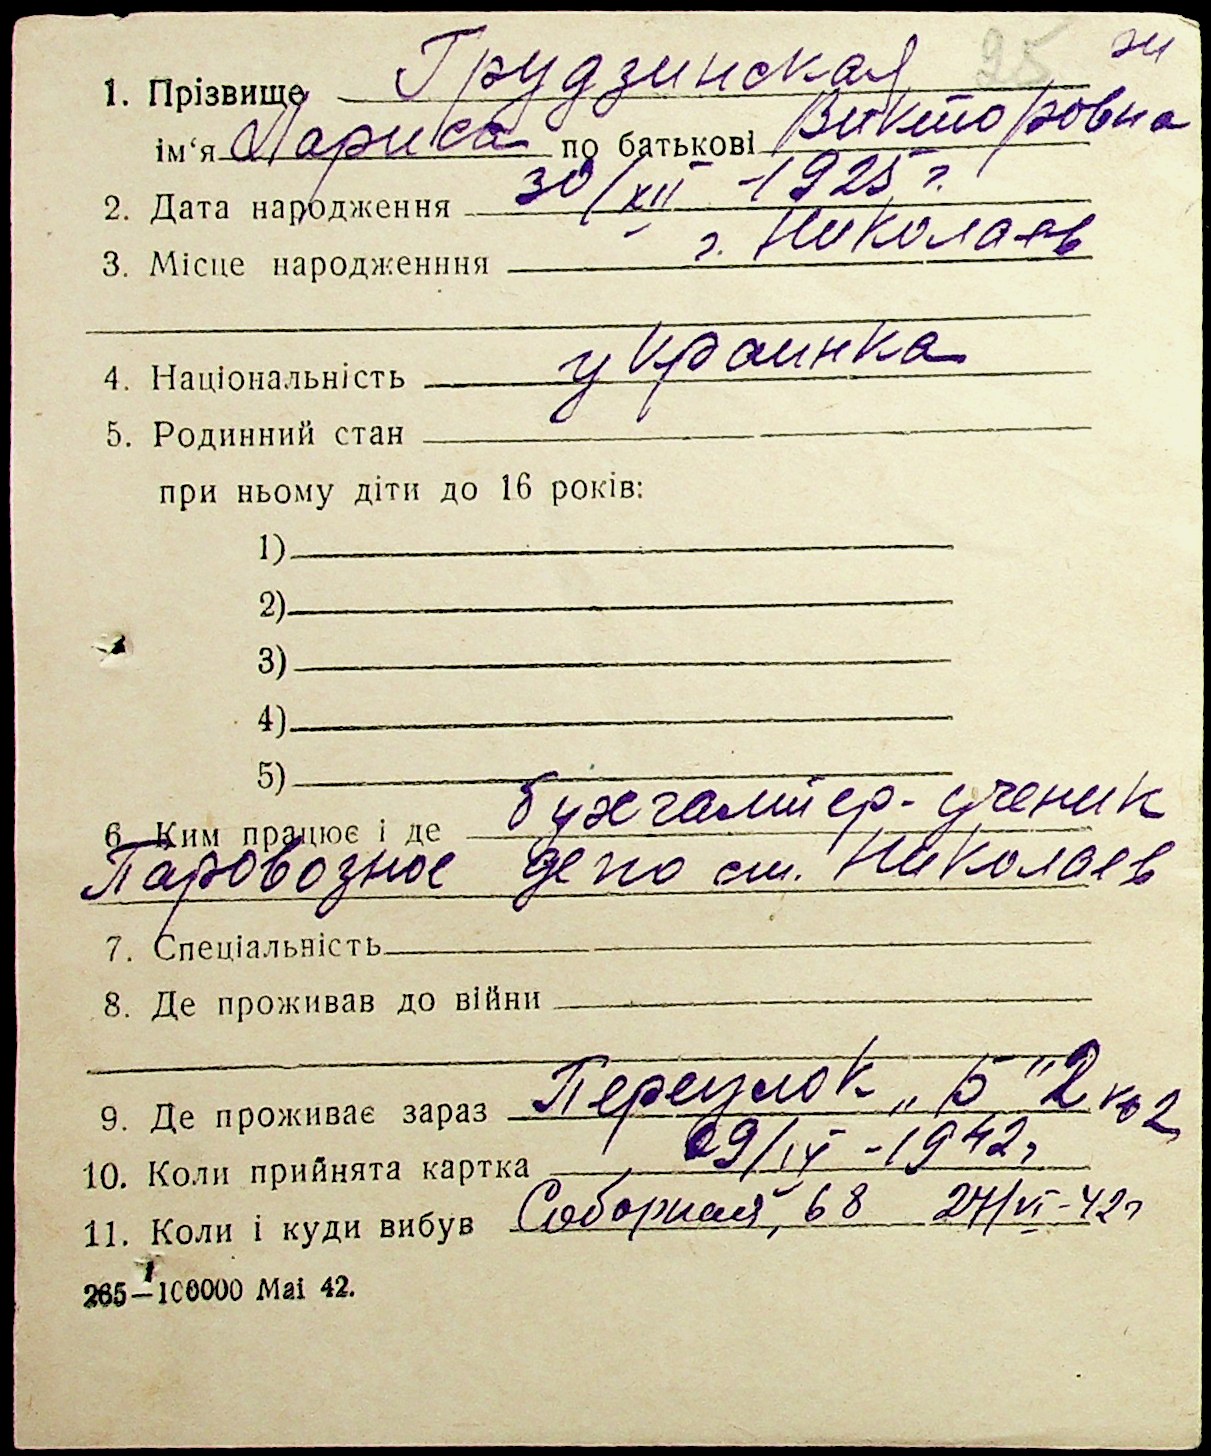 25 ж
1. Прізвище Грудзинская
ім‘я Лариса по батькові Викторовна
2. Дата народження 30/XII -1925 г.
3. Місце народженння г. Николаев
4. Національність украинка
5. Родинний стан
при ньому діти до 16 років:
1)
2)
3)
4)
5)
6. Ким працює і де бухгалтер-ученик
Паровозное депо ст. Николаев
7. Спеціальність
8. Де проживав до війни
9. Де проживає зараз Переулок „Б" 2 кв 2
10. Коли прийнята картка 09/IX -1942г
11. Коли і куди вибув Соборная, 68 27/VI-42г
265—100000 Mai 42.